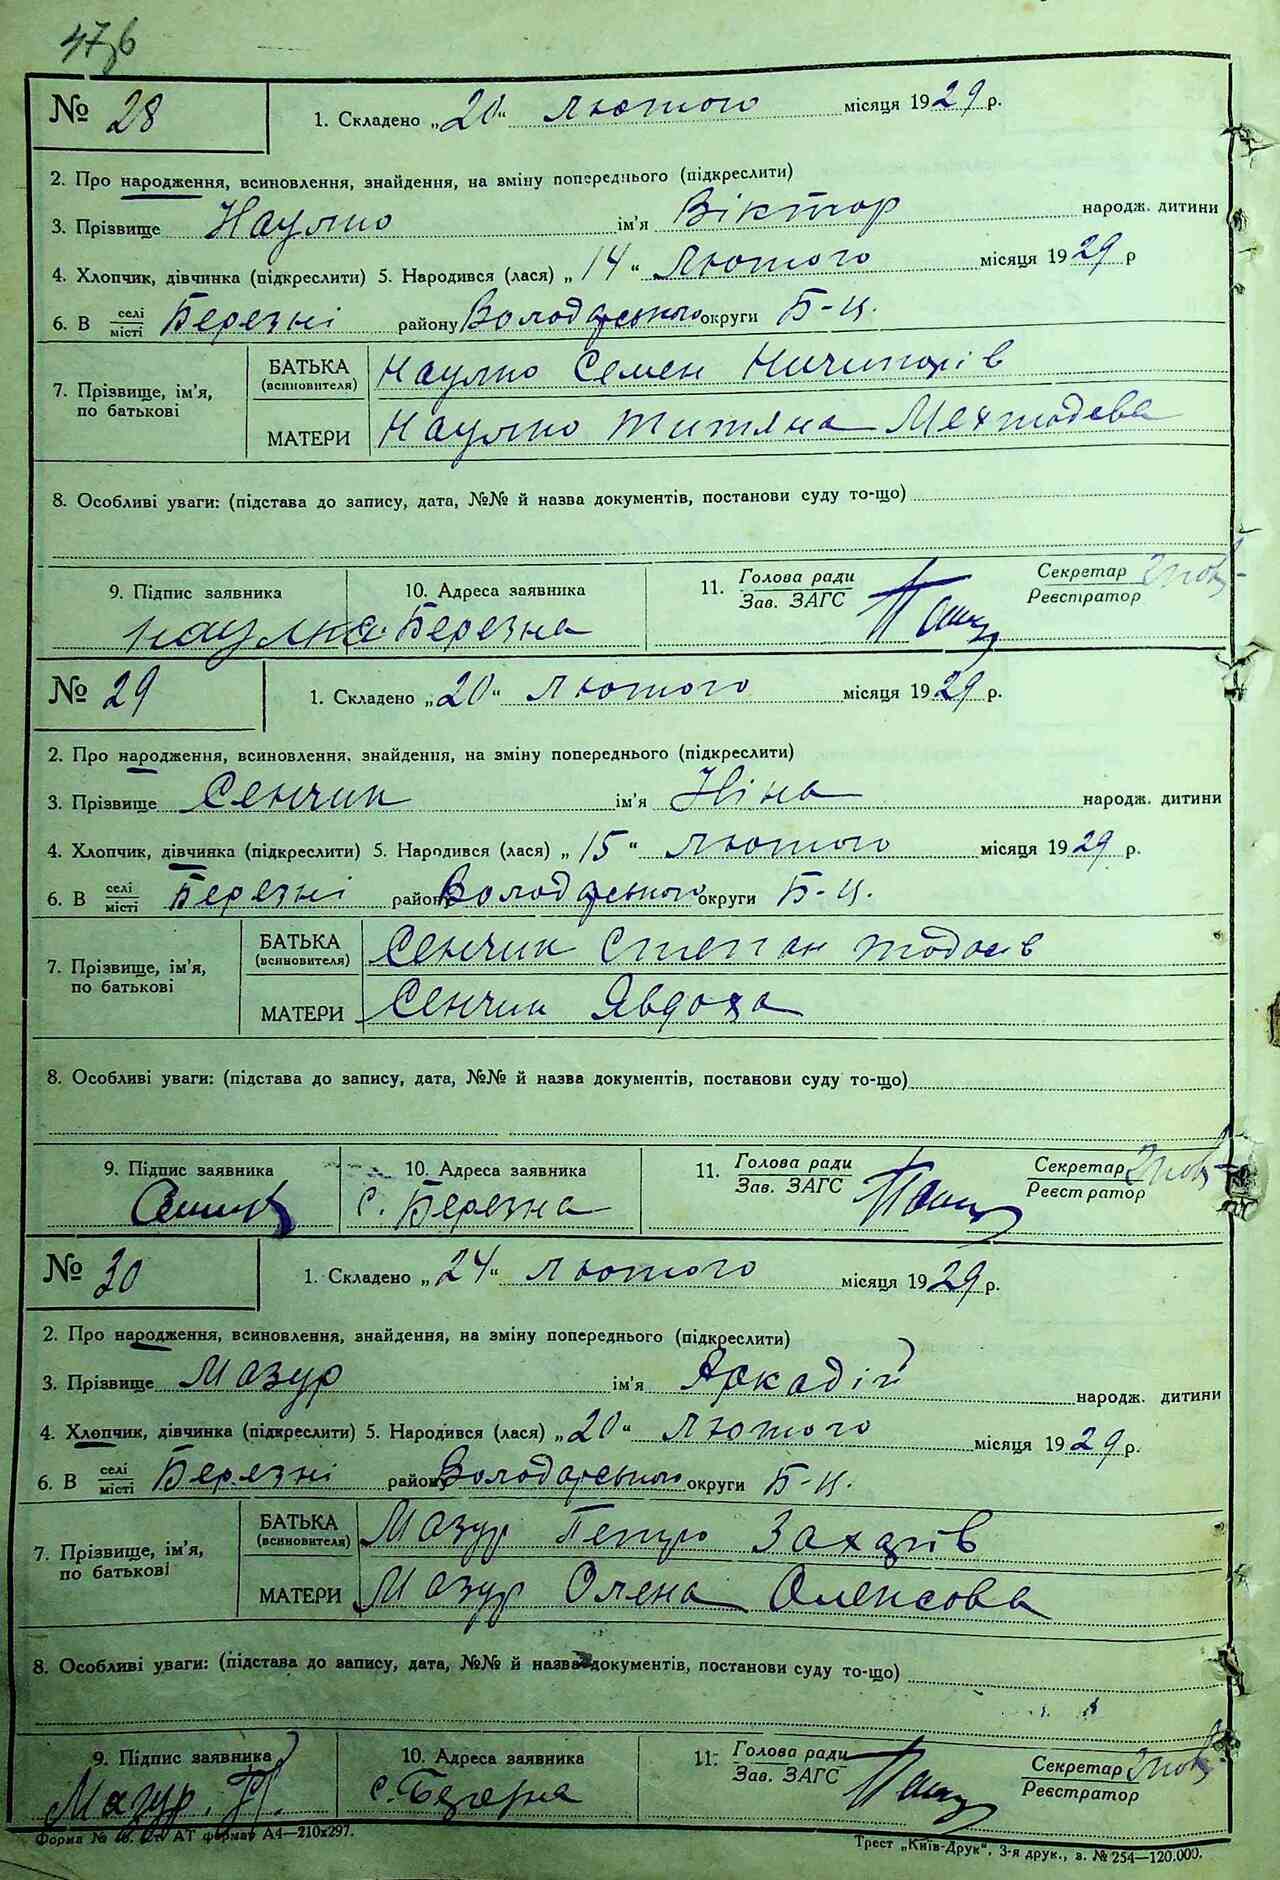 № 28
1. Складено „20“ лютого місяця 1929 р.
2. Про народження, всиновлення, знайдення, на зміну попереднього (підкреслити)
3. Прізвище Наулко ім'я Віктор народж. дитини
4. Хлопчик, дівчинка (підкреслити) 5. Народився (лася) „14“ лютого місяця 1929 р
6. В селі місті Березні району Володарського округи Б-Ц.
7. Прізвище, ім'я, по батькові
БАТЬКА (всиновителя) Наулко Семен Ничипорів
МАТЕРИ Наулко Титяна Мехтодева
8. Особливі уваги: (підстава до запису, дата, №№ й назва документів, постанови суду то-що)
9. Підпис заявника 10. Адреса заявника 11. Голова ради Зав. ЗАГС Секретар Реєстратор
Наулко Березна
№ 29
1. Складено „20“ лютого місяця 1929 р.
2. Про народження, всиновлення, знайдення, на зміну попереднього (підкреслити)
3. Прізвище Сенчик ім'я Ніна народж. дитини
4. Хлопчик, дівчинка (підкреслити) 5. Народився (лася) „15“ лютого місяця 1929 р.
6. В селі місті Березні району Володарського округи Б-Ц.
7. Прізвище, ім'я, по батькові
БАТЬКА (всиновителя) Сенчик Степан Тодосів
МАТЕРИ Сенчик Явдоха
8. Особливі уваги: (підстава до запису, дата, №№ й назва документів, постанови суду то-що)
9. Підпис заявника 10. Адреса заявника 11. Голова ради Зав. ЗАГС Секретар Реєстратор
с. Березна
№ 30
1. Складено „24“ лютого місяця 1929 р.
2. Про народження, всиновлення, знайдення, на зміну попереднього (підкреслити)
3. Прізвище Мазур ім'я Аркадій народж. дитини
4. Хлопчик, дівчинка (підкреслити) 5. Народився (лася) „20“ лютого місяця 1929 р.
6. В селі місті Березні району Володарського округи Б-Ц.
7. Прізвище, ім'я, по батькові
БАТЬКА (всиновителя) Мазур Петро Захарів
МАТЕРИ Мазур Олена Олексова
8. Особливі уваги: (підстава до запису, дата, №№ й назва документів, постанови суду то-що)
9. Підпис заявника 10. Адреса заявника 11. Голова ради Зав. ЗАГС Секретар Реєстратор
Мазур. П. с.
Форма № АТ формат А4—210х297. Трест „Київ-Друк“. 3-я друк., з. № 254—120.000.